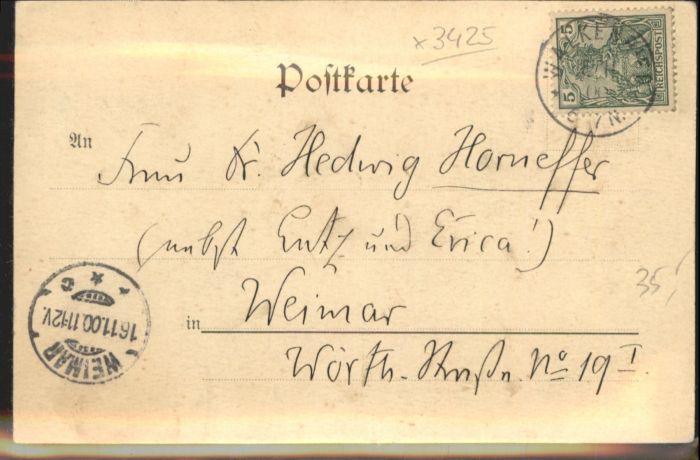 x3425
5 5
REICHSPOST
Postkarte
An
Frau Dr. Hedwig Horneffer
(nebst und Erica!)
35,-
in Weimar
Wörth-Straße No 19 I.
WEIMAR
16.11.00.11-12V.
* c *